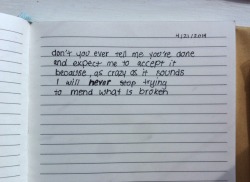 4/21/2014
don't you ever tell me you're done
and expect me to accept it
because, as crazy as it sounds
I will never stop trying
to mend what is broken